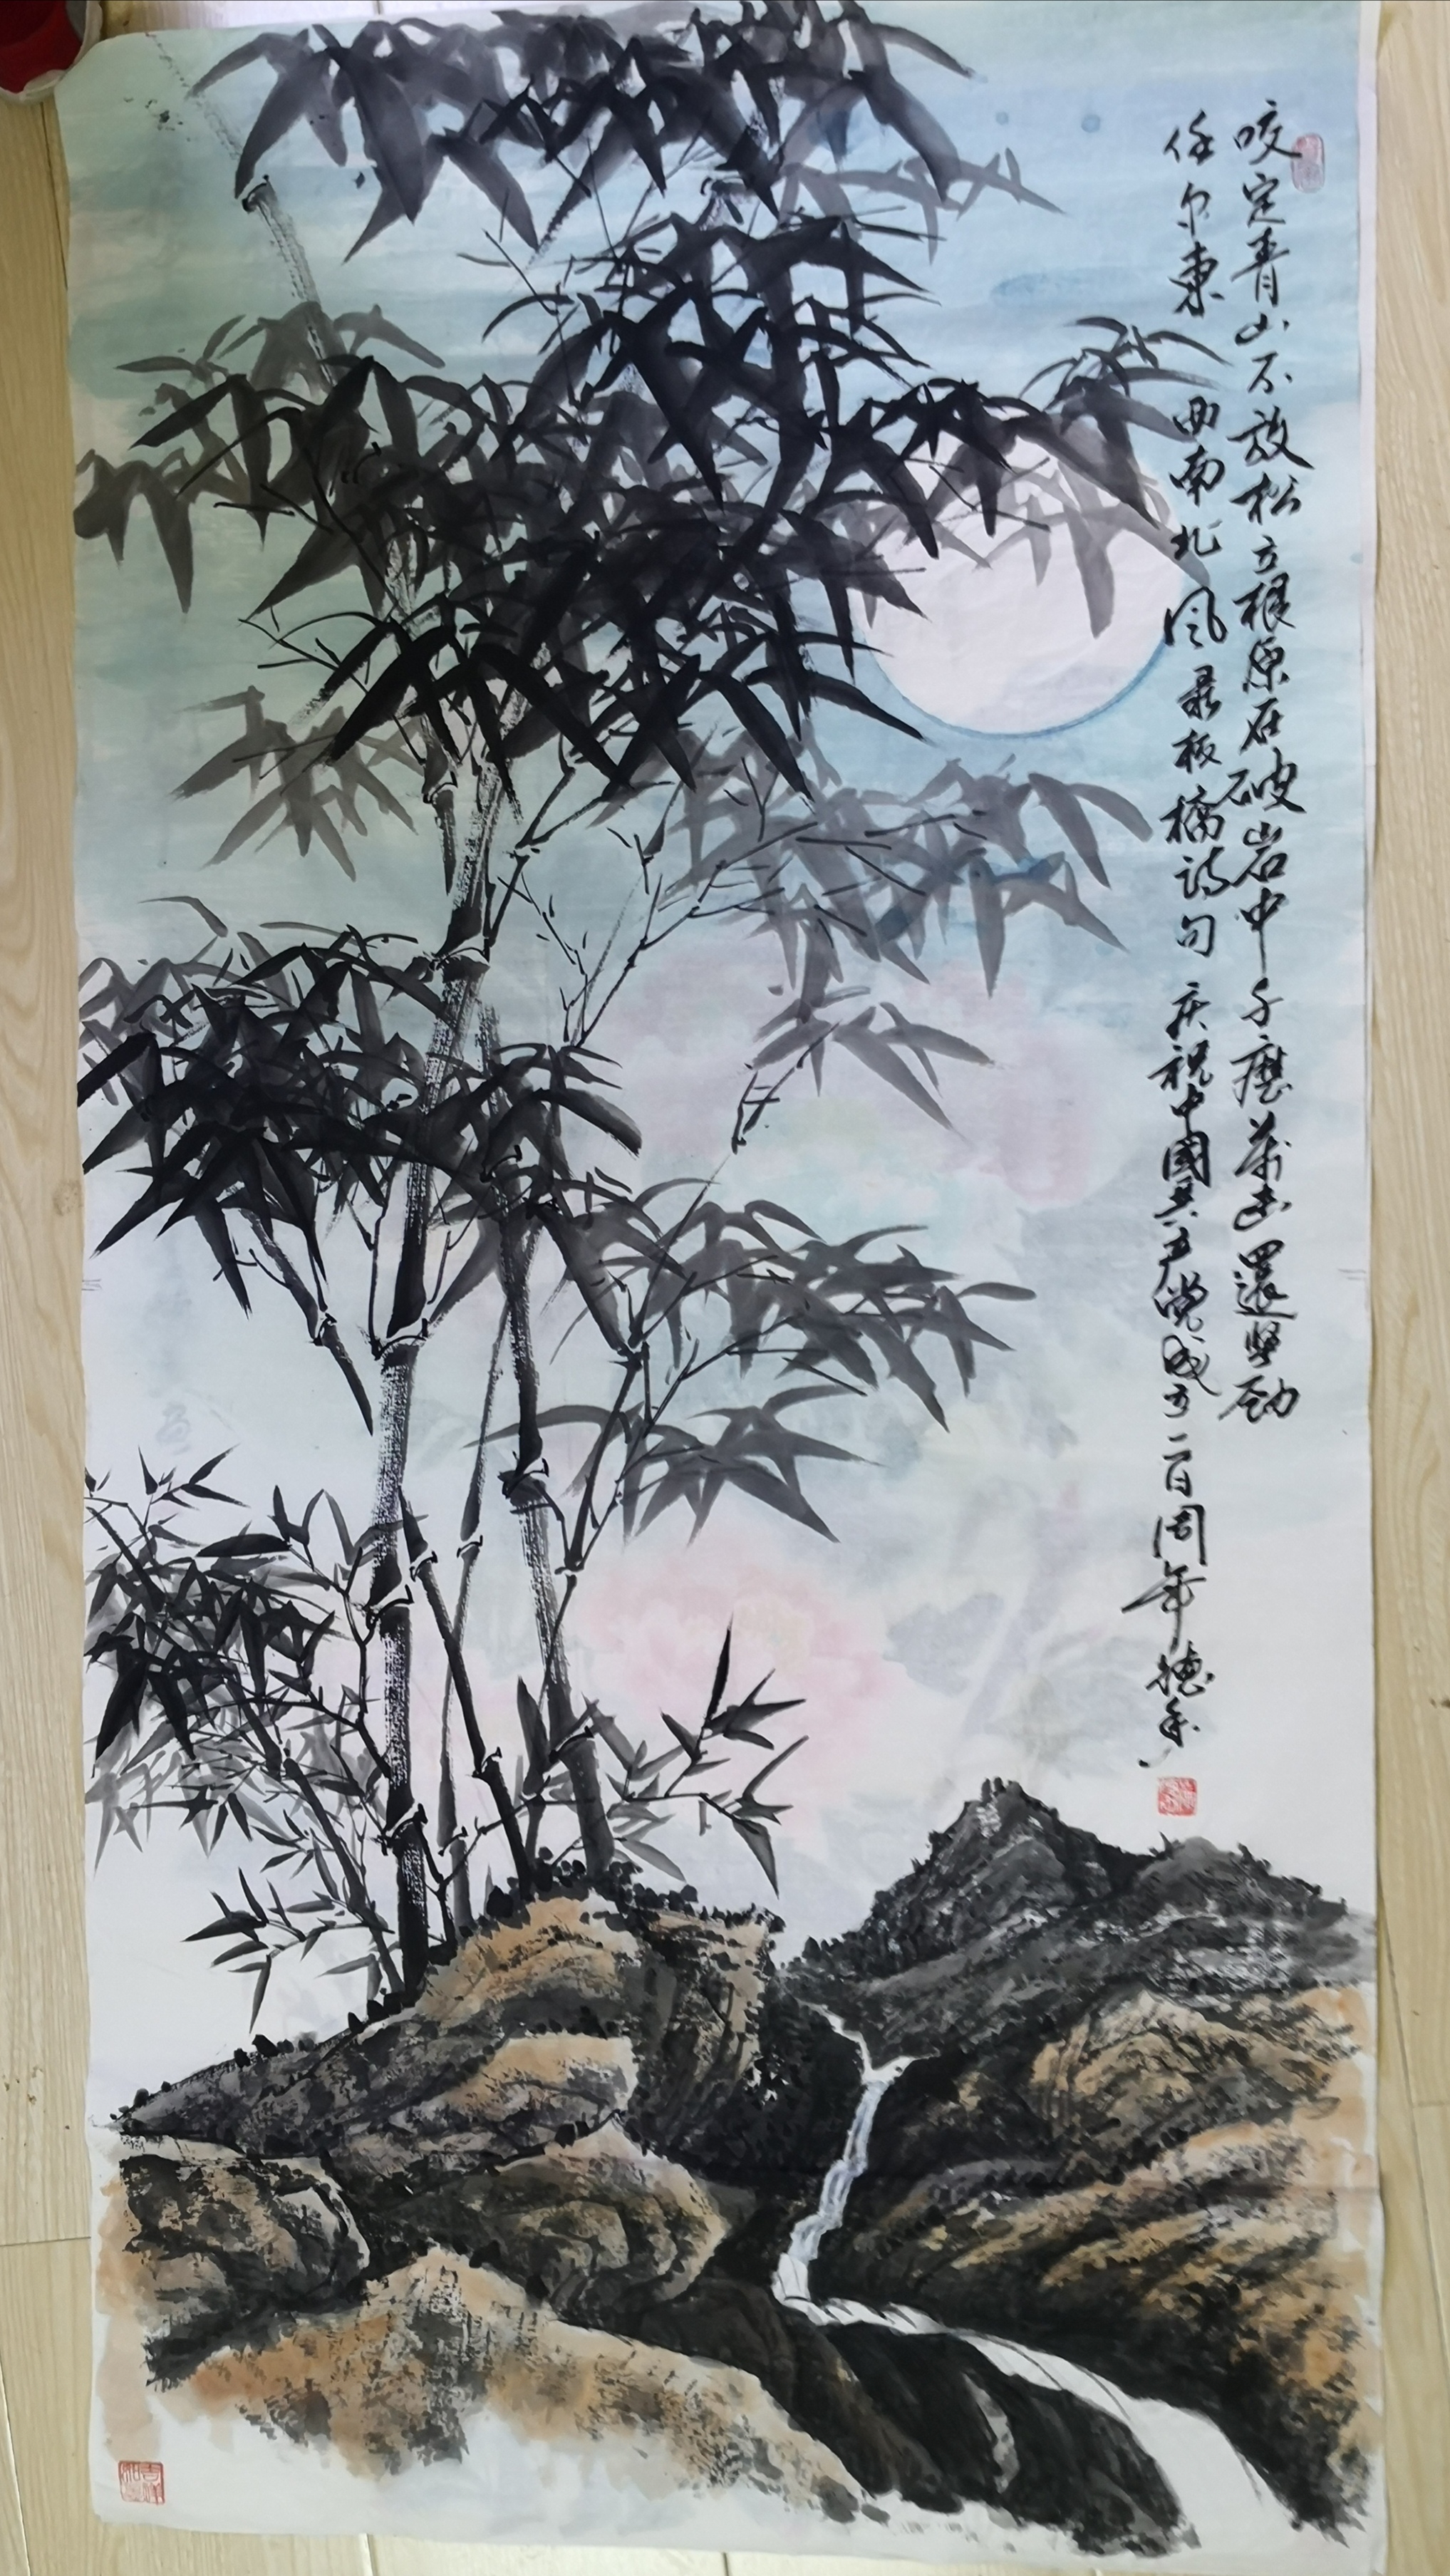 咬定青山不放松立根原在破岩中千磨萬击還坚劲
任尔東西南北风录板橋诗句 庆祝中國共产党成立一百周年 德